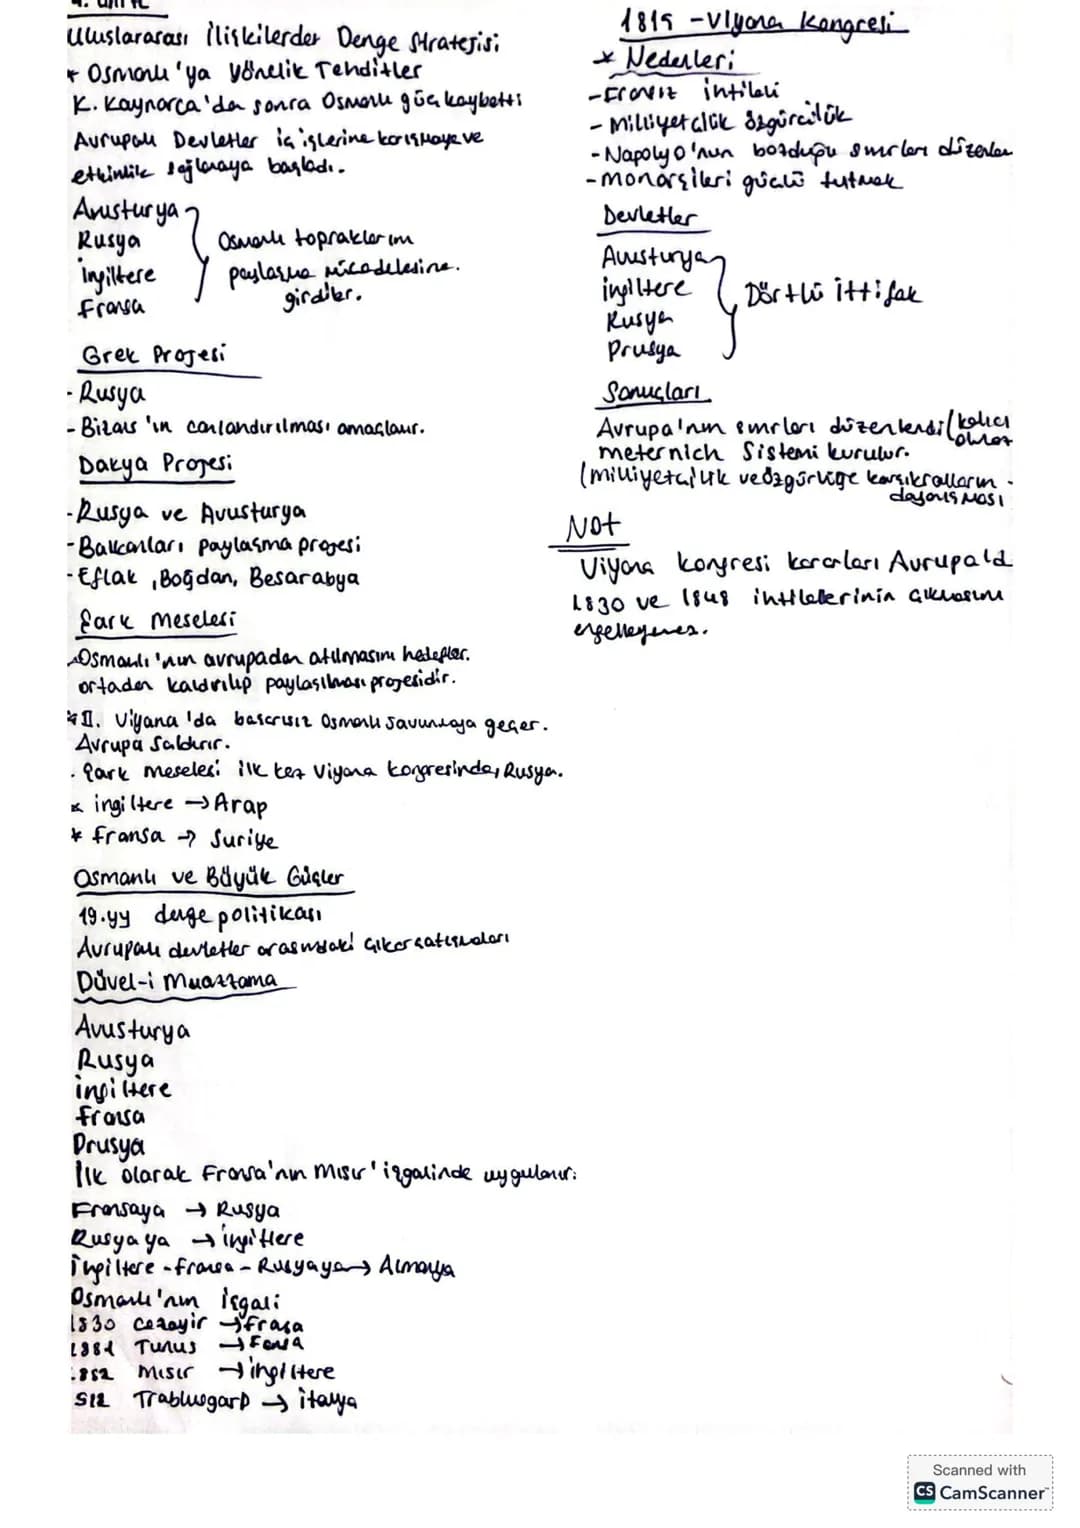 4. ünite
Uluslararası ilişkilerder Denge Stratejisi
* Osmanlı'ya Yönelik Tehditler
K. Kaynarca'dan sonra Osmanlı güç kaybetti
Avrupalı Devletler iç işlerine karışmaya ve
etkinlik sağlamaya başladı.
Avusturya
Rusya
İngiltere
Fransa
Osmanlı toprakların
paylaşma mücadelesine
girdiler.
Grek Projesi
- Rusya
- Bizans'ın canlandırılması amaçlanır.
Dakya Projesi
- Rusya ve Avusturya
- Balkanları paylaşma projesi
- Eflak, Boğdan, Besarabya
Şark Meselesi
Osmanlı'nın avrupadan atılmasını hedefler.
ortadan kaldırılıp paylaşılması projesidir.
* II. Viyana'da başarısız Osmanlı savunmaya geçer.
Avrupa Saldırır.
. Şark meselesi ilk kez Viyana kongresinde, Rusya.
* ingiltere → Arap
* fransa → Suriye
Osmanlı ve Büyük Güçler
19.yy denge politikası
Avrupalı devletler arasındaki çıkar çatışmaları
Düvel-i Muazzama
Avusturya
Rusya
ingiltere
fransa
Prusya
İlk olarak Fransa'nın Mısır'işgalinde uygulanır.
Fransaya → Rusya
Rusyaya → ingiltere
İngiltere - fransa - Rusyaya → Almanya
Osmanlı'nın işgali
1830 cezayir → frasa
1881 Tunus →
1882 Mısır → ingiltere
Trablusgarp → italya
1815 - Viyana Kongresi
* Nedenleri
- Fransız intilali
- Milliyetçilik özgürcülük
- Napolyo'nun bozduğu sınırları düzenler
- monarşileri güçlü tutmak
Devletler
Avusturya
ingiltere
Rusya
Prusya
Dörtlü ittifak
Sonuçları
Avrupa'nın sınırları düzenlendi (kalıcı
olmaz
meternich Sistemi kurulur.
(milliyetçilik ve özgürlüğe karşı kralların
dayanışması
Not
Viyana kongresi kararları Avrupa'da
1830 ve 1848 ihtilallerinin çıkmasını
engelleyemez.
Scanned with
CS CamScanner